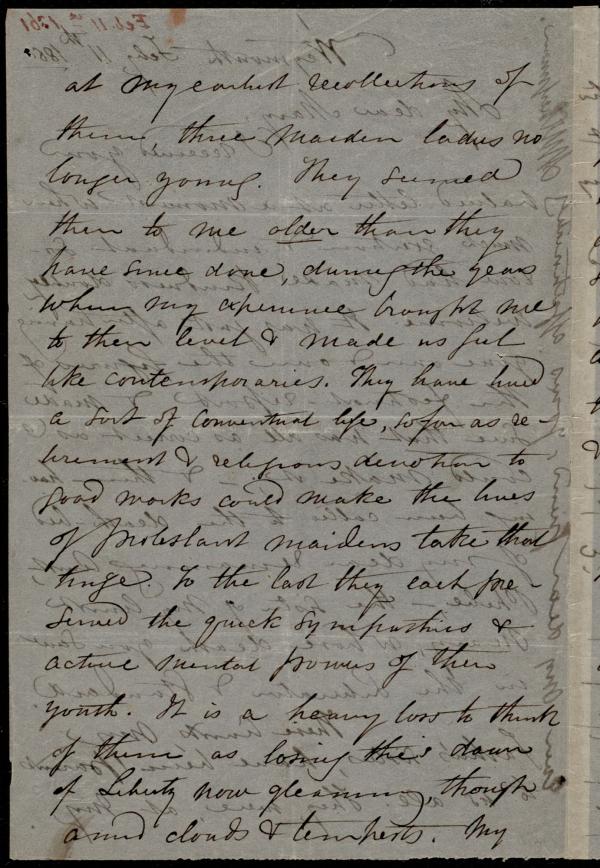 Feb. 11th 1861
at my earliest recollections of
them three maiden ladies no
longer young. They seemed
then to me older than they
have since done, during the years
when my experience brought me
to their level & made us feel
like contemporaries. They have lived
a sort of conventual life, so far as re-
tirement & religious devotion to
good works could make the lives
of Protestant maidens take that
tinge. To the last they each pre-
served the quick sympathies &
active mental powers of their
youth. It is a heavy loss to think
of them as losing this dawn
of Liberty now gleaming, though
amid clouds & tempests. My